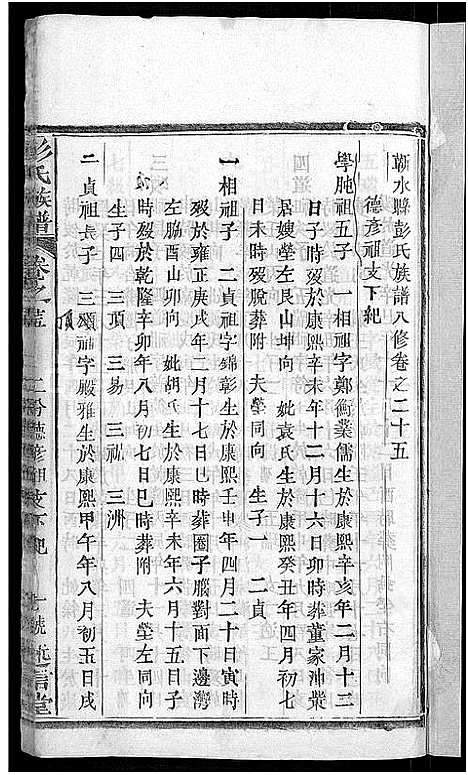 蘄水縣彭氏族譜八修卷之二十五
德彥祖支下紀
學肫祖五子 一相祖字鄭衡業儒生於康熙辛亥年二月十三
日子時歿於康熙辛未年十二月十六日卯時葬董家沖柴
屋嫂塋左艮山坤向 妣袁氏生於康熙癸丑年四月初七
日未時歿脫葬附 夫塋同向 生子一 二貞
一相祖子 二貞祖字錦彰生於康熙壬申年四月二十日寅時
歿於雍正庚戌年二月十七日巳時葬圈子腦對面下邊灣
左脇酉山卯向 妣胡氏生於康熙辛未年六月十五日子
時歿於乾隆辛卯年八月初七日巳時葬附 夫塋左同向
生子四 三項 三易 三祉 三洲
二貞祖長子 三頌祖字殿雅生於康熙甲午年八月初五日戌
頂
彭氏族譜 卷之 二分德彥祖支下紀 一號 述信堂